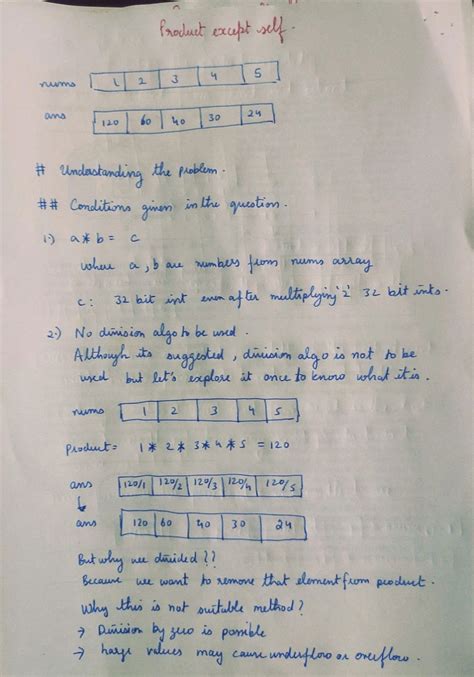 Product except self.
nums 1 2 3 4 5
ans 120 60 40 30 24
# Understanding the problem.
## Conditions given in the question.
1.) a * b = c
where a, b are numbers from nums array
c: 32 bit int even after multiplying '2' 32 bit ints.
2.) No division algo to be used.
Although its suggested, division algo is not to be
used but let's explore it once to know what it is.
nums 1 2 3 4 5
Product = 1 * 2 * 3 * 4 * 5 = 120
ans 120/1 120/2 120/3 120/4 120/5
↓
ans 120 60 40 30 24
But why we divided??
Because we want to remove that element from product.
Why this is not suitable method?
→ Division by zero is possible
→ Large values may cause underflow or overflow.